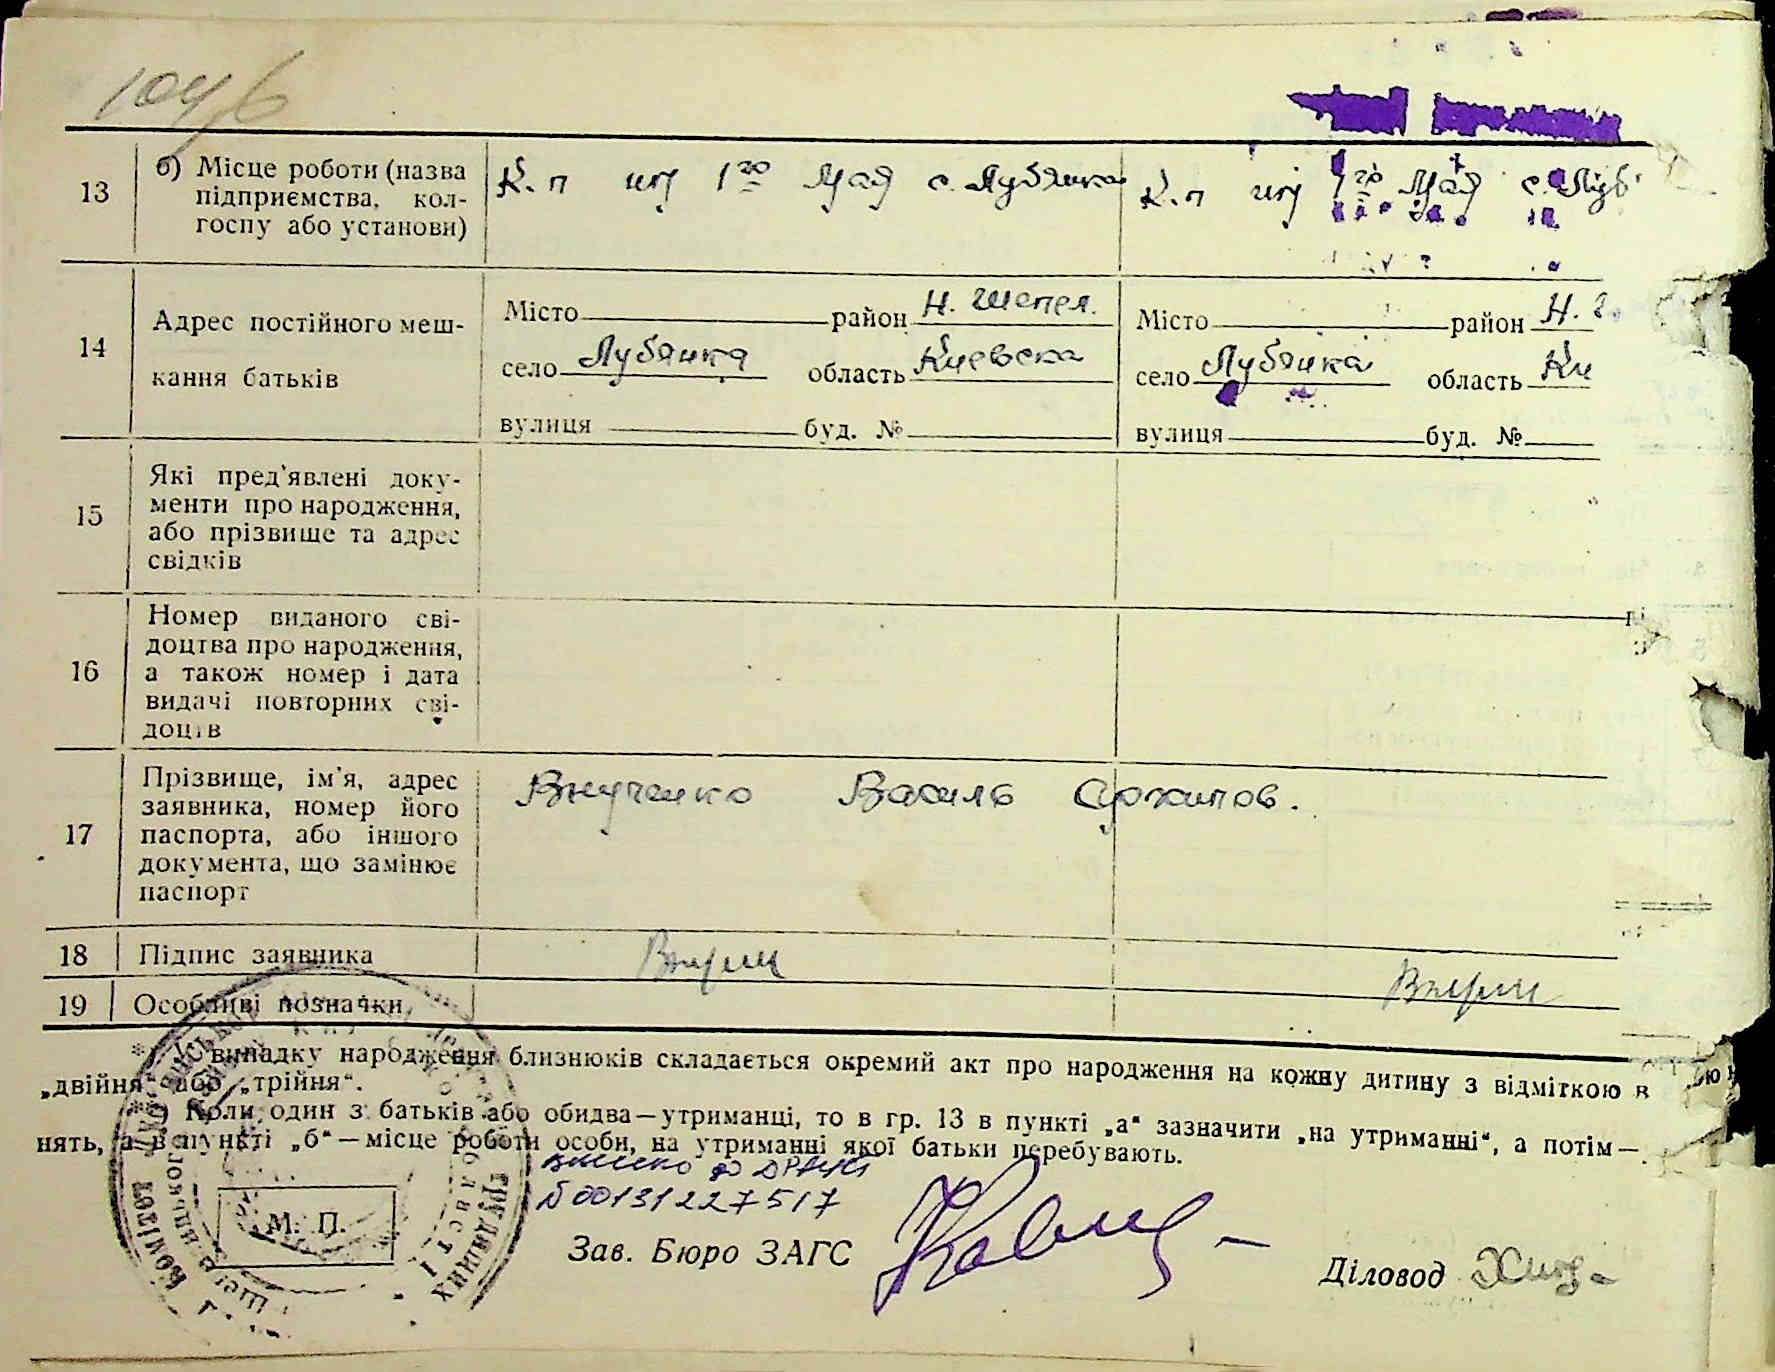 104б
13
б) Місце роботи (назва
підприємства, кол-
госпу або установи)
К.п им 1го Мая с. Лубянка
К.п им 1го Мая с. Луб
14
Адрес постійного меш-
кання батьків
Місто район Н. Шепел.
село Лубянка область Киевска
вулиця буд. №
Місто район Н.
село Лубянка область Ки
вулиця буд. №
15
Які пред'явлені доку-
менти про народження,
або прізвище та адрес
свідків
16
Номер виданого сві-
доцтва про народження,
а також номер і дата
видачі повторних сві-
доцтв
17
Прізвище, ім'я, адрес
заявника, номер його
паспорта, або іншого
документа, що замінює
паспорт
Внученко Василь Архипов.
18 Підпис заявника
19 Особливі позначки
*) У випадку народження близнюків складається окремий акт про народження на кожну дитину з відміткою в
„двійня" або „трійня".
Коли один з батьків або обидва—утриманці, то в гр. 13 в пункті „а" зазначити „на утриманні", а потім—
нять, а в пункті „б"—місце роботи особи, на утриманні якої батьки перебувають.
внесено до ДРАЦС
№00131227517
М. П.
Зав. Бюро ЗАГС
Діловод